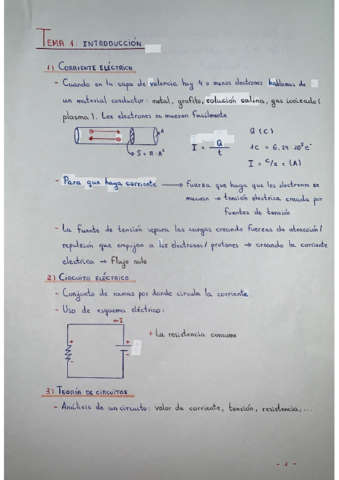 TEMA 1: INTRODUCCIÓN
1) CORRIENTE ELÉCTRICA
- Cuando en la capa de valencia hay 4 o menos electrones hablamos de
un material conductor: metal, grafito, solución salina, gas ionizado (
plasma). Los electrones se mueven facilmente
A
S = π·A²
I = Q / t
Q (C)
1C = 6,24·10¹⁸ e⁻
I = C/s = (A)
- Para que haya corriente → Fuerza que haga que los electrones se
muevan → tensión electrica creada por
fuentes de tensión
- La fuente de tensión separa las cargas creando fuerzas de atracción/
repulsión que empujan a los electrones/protones → creando la corriente
electrica → Flujo
2) CIRCUITO ELÉCTRICO
- Conjunto de ramas por donde circula la corriente.
- Uso de esquema eléctrico:
I
+ La resistencia consume
+ +
- -
3) TEORÍA DE CIRCUITOS
- Análisis de un circuito: valor de corriente, tensión, resistencia,...
- 1 -